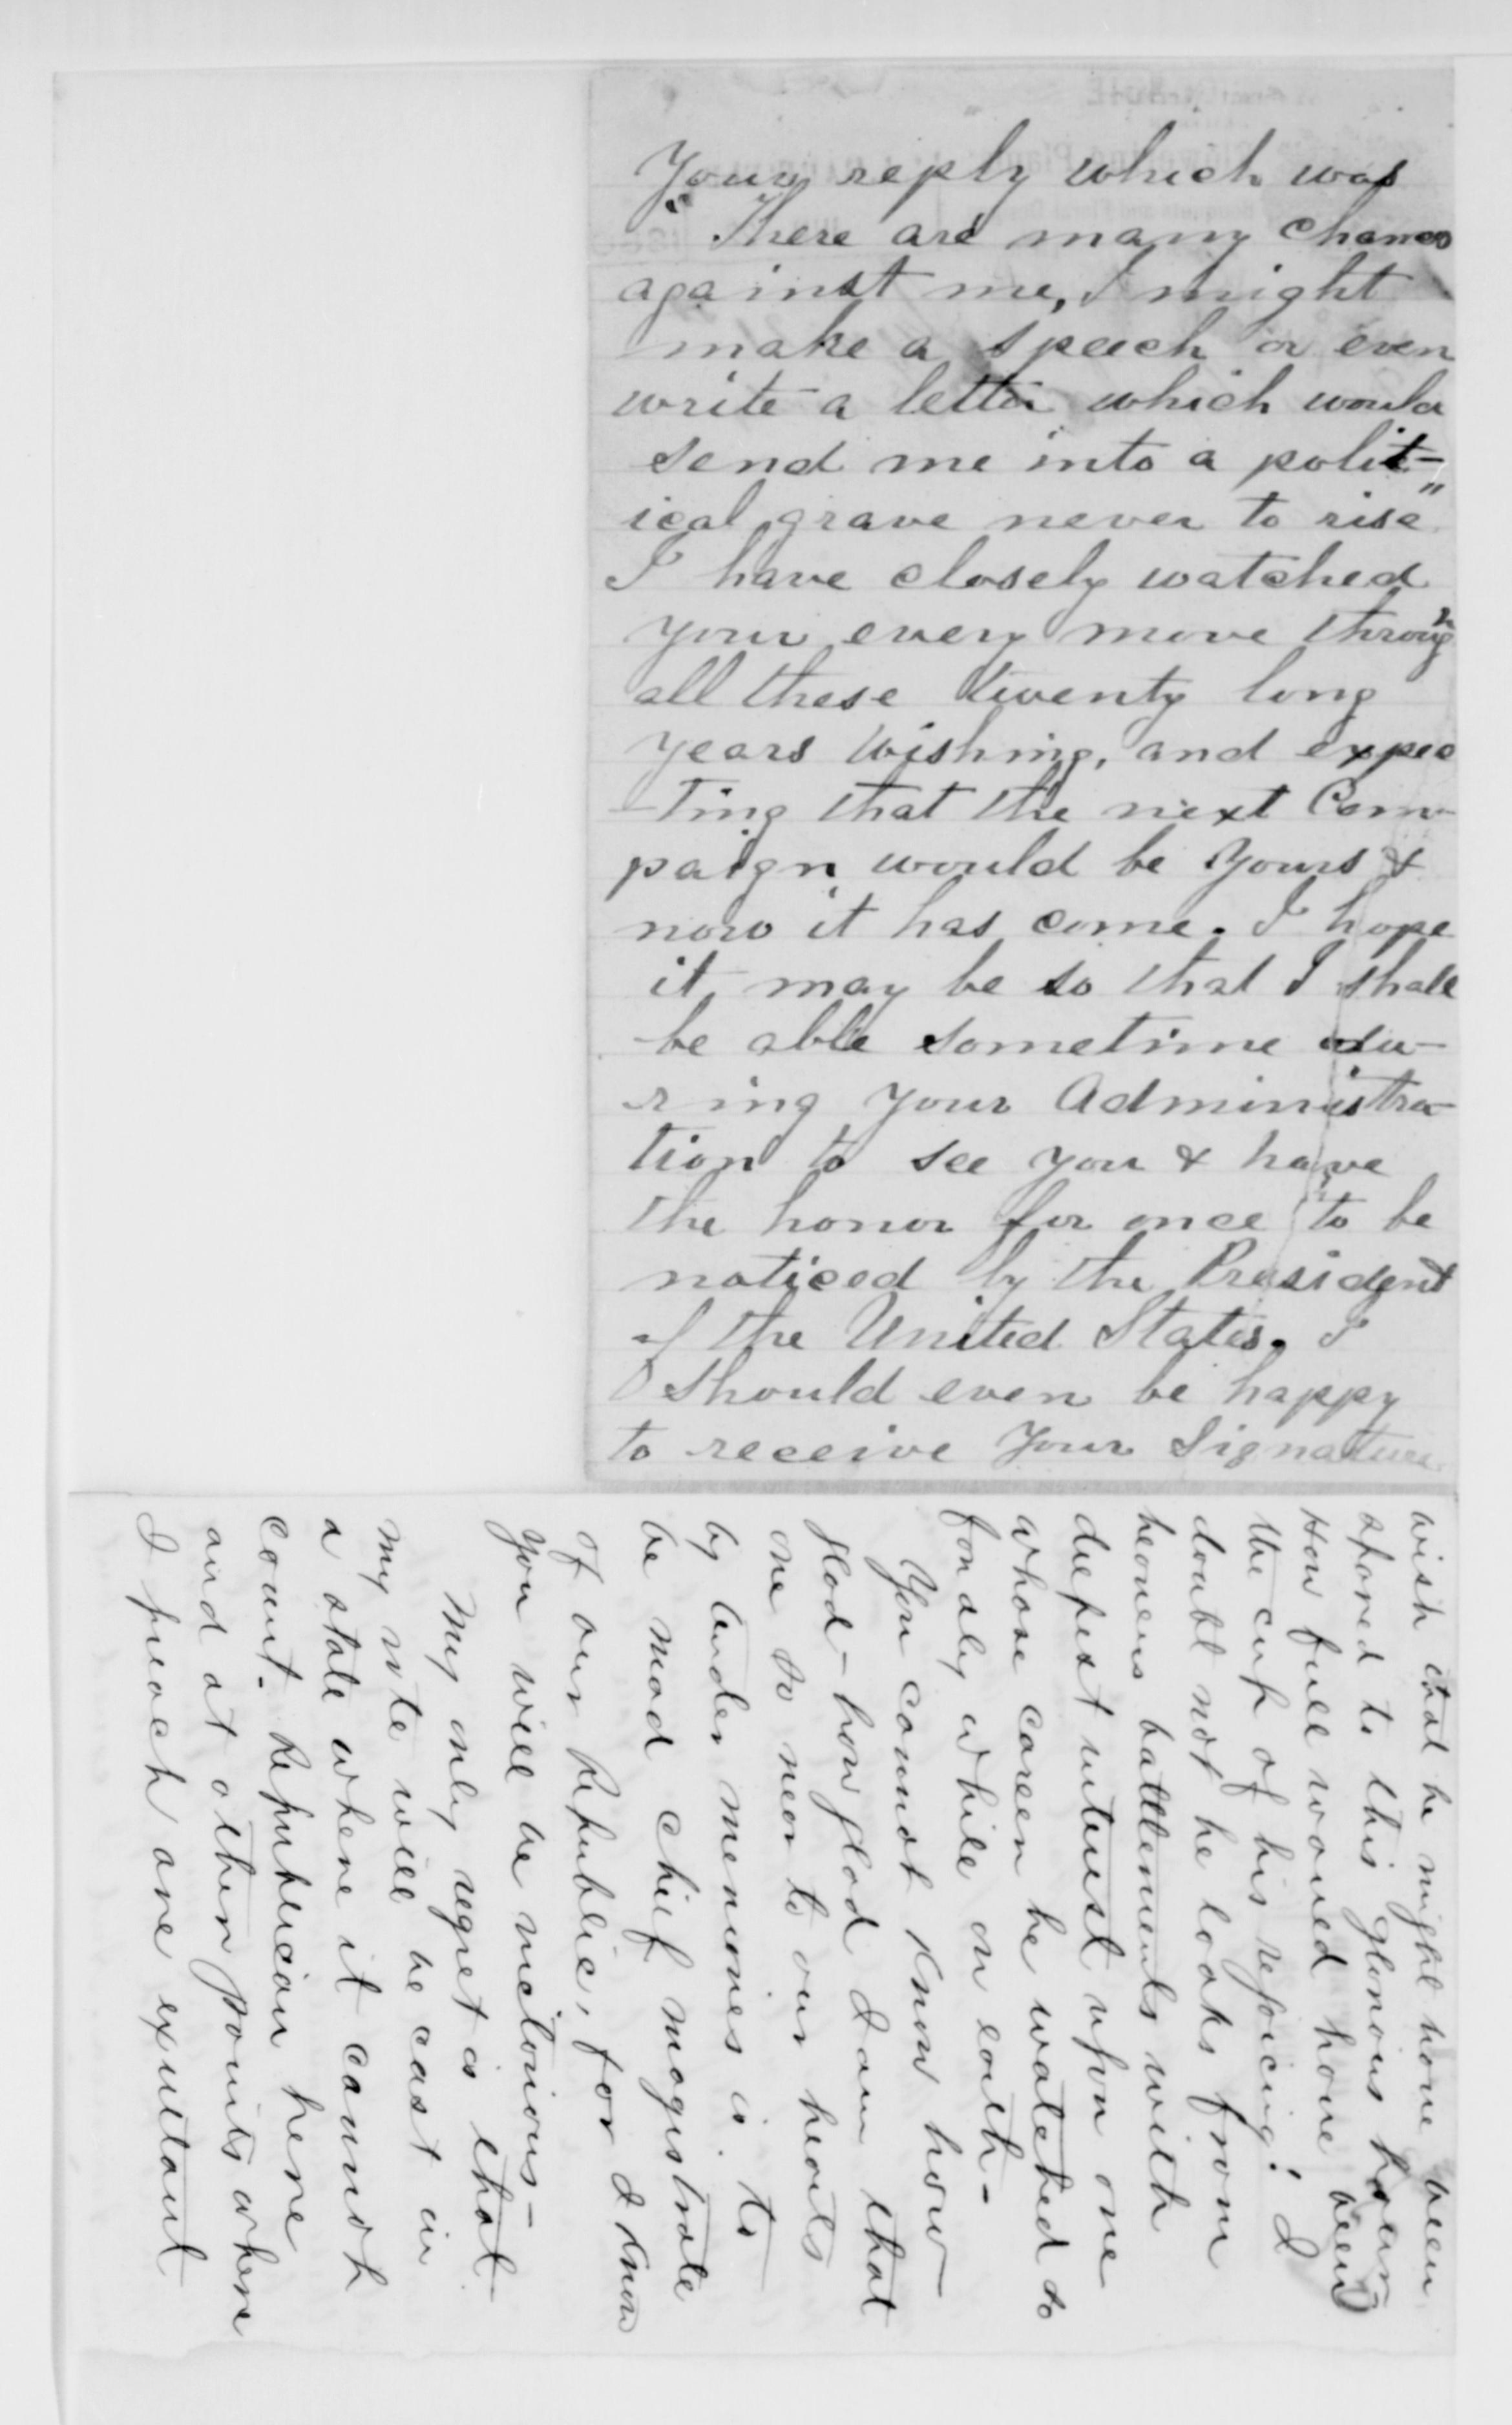 Your reply which was
"There are many chances
against me, I might
make a speech or even
write a letter which would
send me into a polit-
ical grave never to rise"
I have closely watched
your every move through
all these twenty long
years wishing, and expec
-ting that the next Cam-
paign would be yours &
now it has come. I hope
it may be so that I shall
be able sometime du-
ring your Administra-
tion to see you & have
the honor for once to be
noticed by the President
of the United States. I
should even be happy
to receive your Signature
wish that he might have been
spared to this glorious hour.
How full would have been
the cup of his rejoicing! I
doubt not he looks from
heavens battlements with
deepest interest upon one
whose career he watched so
fondly while on earth-
You cannot know how
glad - how glad I am that
one so near to our hearts
by tender memories is to
be mad chief magistrate
of our Republic, for I know
you will be victorious-
My only regret is that
my vote will be cast in
a state where it cannot
count. Republican here
and at other points where
I preach are exultant